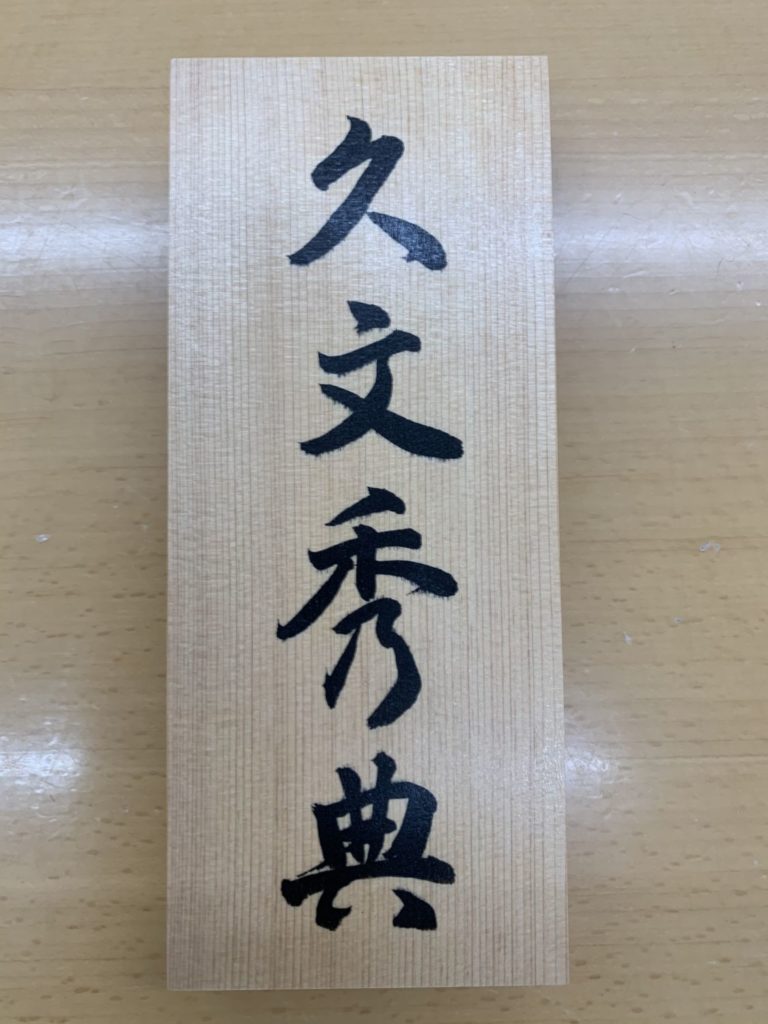 久文秀典